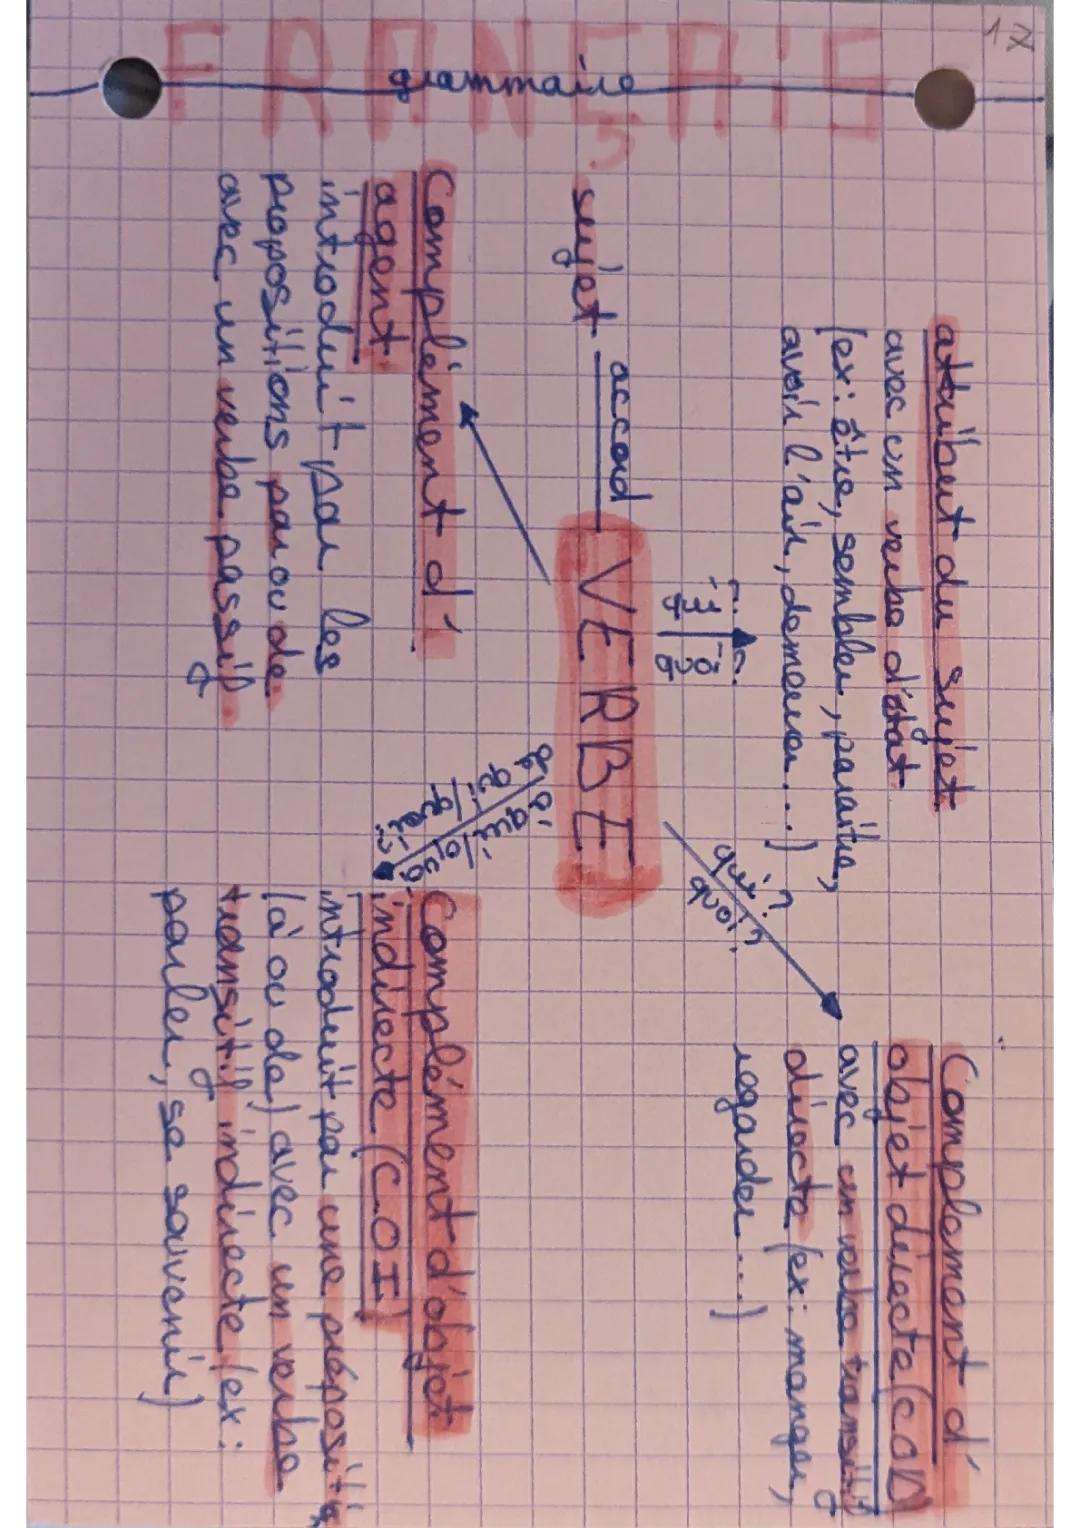 17
FRANÇAIS
grammaire
attribut du sujet
avec un verbe d'état
(ex: être, sembler, paraitre,
avoir l'air, demeurer...)
qui?
quoi?
Complement d'
objet directe (COD
avec un verbe transitif
directe (ex: manger,
regarder...)
qui?
quoi?
sujet accord VERBE
Complément d'
agent.
introduit par les
propositions par ou de
avec un verbe passif
à qui / quoi?
de qui / quoi?
Complément d'objet
indirecte (C.OI)
introduit par une préposition
(à ou de) avec un verbe
transitif indirecte (ex:
parler, se souvenir)